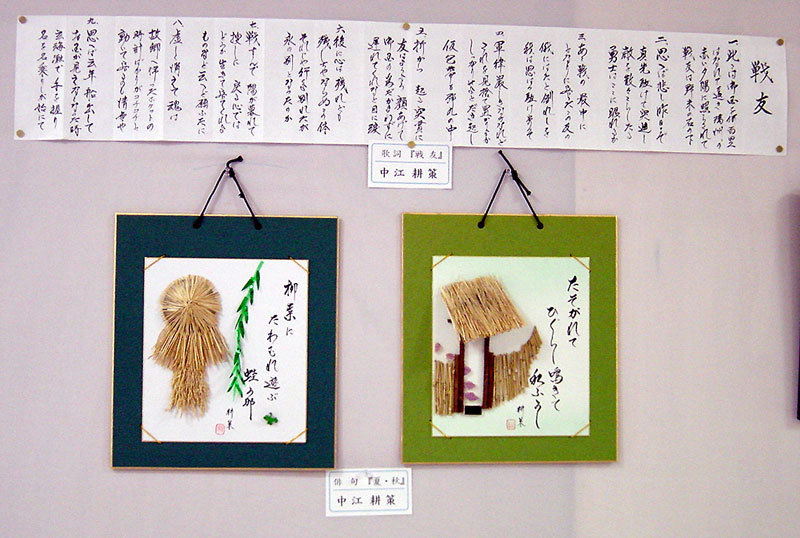 戦友
一、此処は御国を何百里
はなれて遠き満州の
赤い夕陽に照らされて
戦友は野末の石の下
二、思へば悲し昨日まで
真先駆けて突進し
敵を散々こらしたる
勇士はここに眠れるか
三、あゝ戦の最中に
となりに居った友の
俄かにはたと倒れしを
我は思はず駆け寄って
四、軍律厳しき中なれど
これを見捨て置かりょうか
しっかりせよと抱き起し
仮包帯も弾丸の中
五、折から起る突貫に
友はようよう顔あげて
御国の為だかまわずに
遅れてくれなと目に涙
六、後に心は残れども
残しちゃならぬこの体
それじゃ行くよと別れたが
永の別れとなったのか
七、戦すんで陽が暮れて
捜しに戻る心では
どうか生きて居てくれよ
ものなど云へと願ふたに
八、虚しく冷えて魂は
故郷へ帰ったポケットの
時計ばかりがコチコチと
動いて居るも情けなや
九、思へば去年船出して
お国が見えずなった時
玄海灘で手を握り
名を名乗りしが始にて
歌詞『戦友』
中江耕策
柳葉に
たわむれ遊ぶ
蛙か那
耕策
たそがれて
ひぐらし鳴きて
秋ふかし
耕策
俳句『夏・秋』
中江耕策